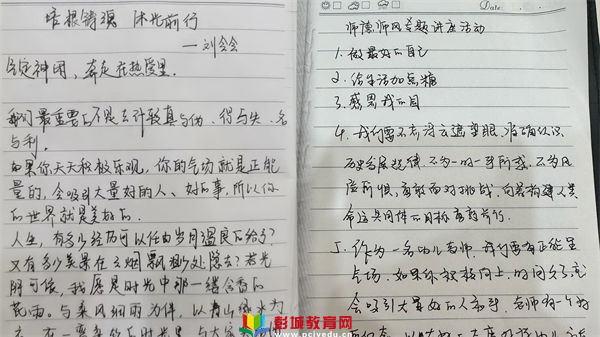 培根铸魂 沐光前行
——刘会会
气定神闲，奔走在热爱里。
我们最重要的不是去计较真与伪、得与失、名
与利。
如果你天天积极乐观，你的气场就是正能
量的，会吸引大量好的人、好的事，所以你
的世界就是美好的。
人生，有多少经历可以任由岁月温良的给予？
又有多少美景在云烟飘渺处隐去？若光
阴可倾，我愿是时光中那一缕含香的
花雨。与春风细雨为伴，以青山绿水为
Date
师德师风专题讲座活动
1. 做最好的自己
2. 给生活加点糖
3. 感恩我的
4. 我们要不畏浮云遮望眼，准确认识
历史发展规律，不为一时一事所惑，不为风
险所惧，勇敢面对挑战，向着构建人类
命运共同体的目标勇敢前行。
5. 作为一名幼儿老师，我们要有正能量
气场，如果你积极向上，时间久了就
会吸引大量好的人和事，老师有一个好
彭城教育网
www.pcjyedu.cn